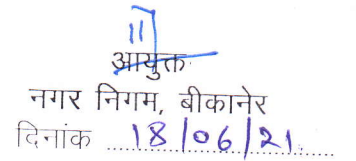 आयुक्त
नगर निगम, बीकानेर
दिनांक 18/06/21